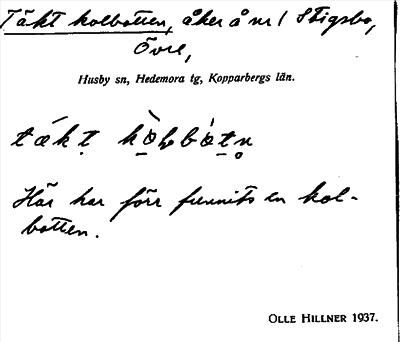 Täkt kolbotten, åker å nr 1 Stigsbo,
Övre,
Husby sn, Hedemora tg, Kopparbergs län.
Här har förr funnits en kol-
botten.
OLLE HILLNER 1937.